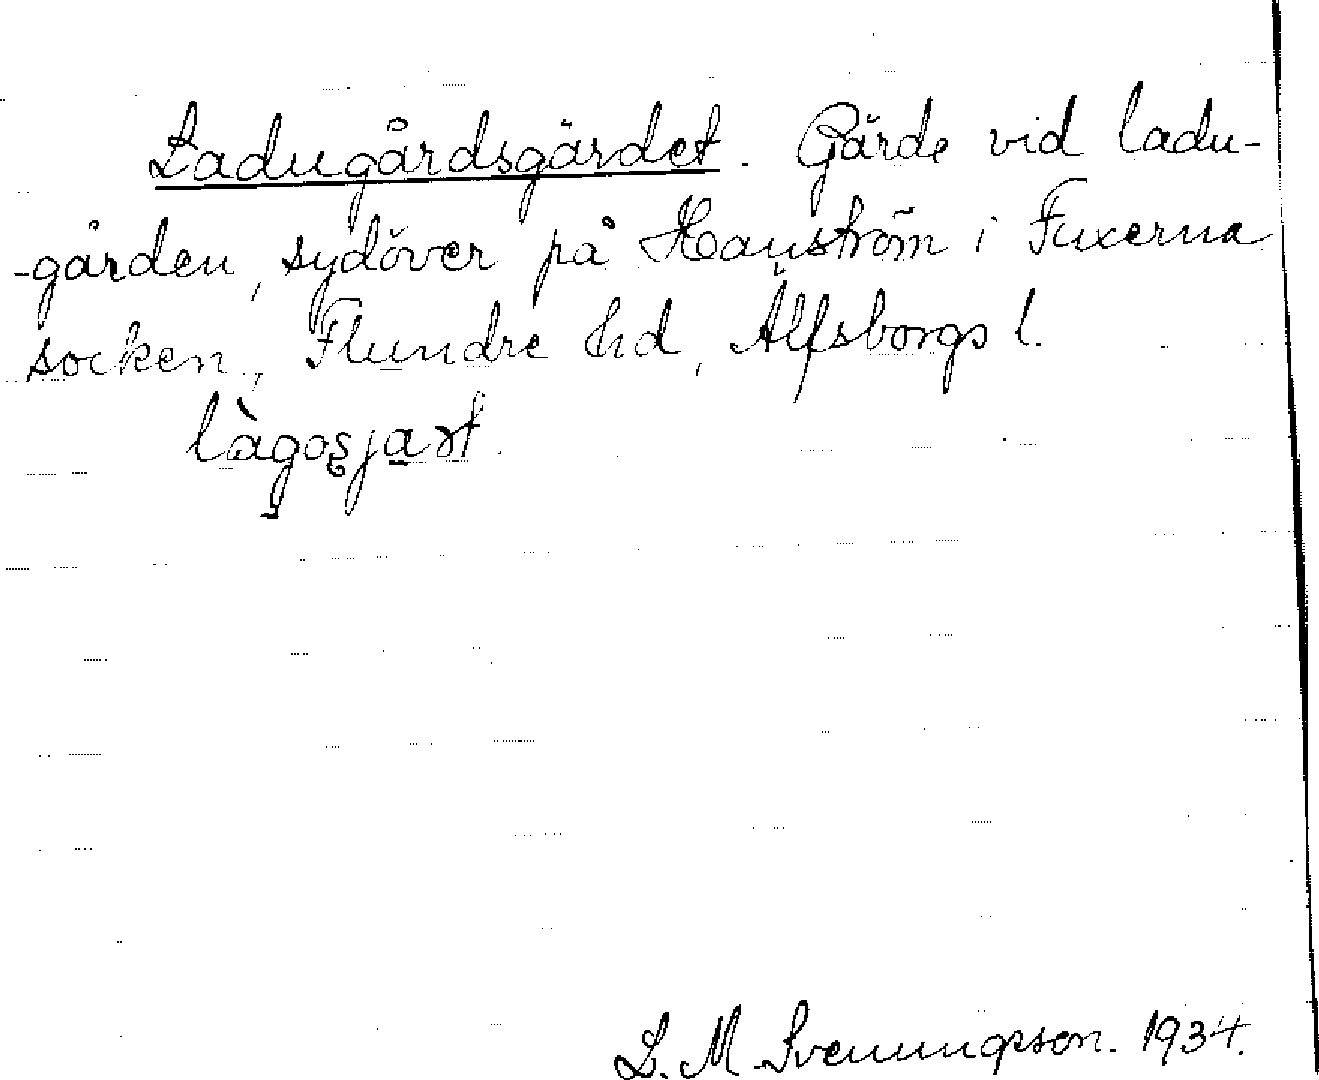 Ladugårdsgärdet. Gärde vid ladu-
-gården, sydöver på Hanström i Fuxerna
socken, Flundre hd, Älfsborgs l.
làgosjart.
L. M. Svenungsson. 1934.